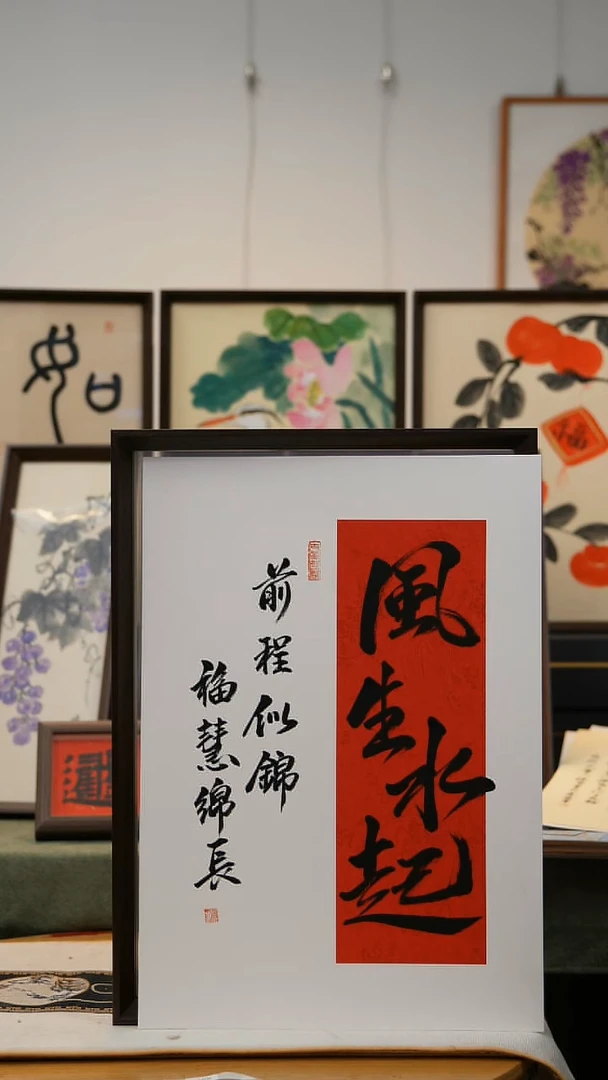 風生水起
前程似錦
福慧綿長
如
福